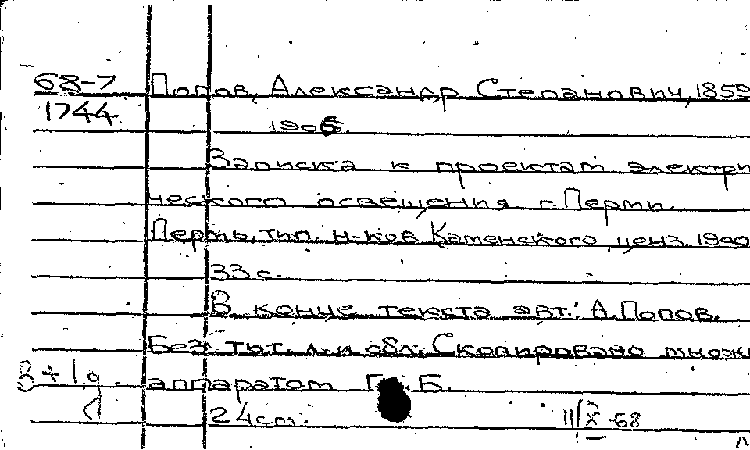 68-7 Попов, Александр Степанович, 1859
1744
1906.
Записка к проектам электри
ческого освещения г. Перми.
Пермь, тип. н-ков Каменского, ценз. 1900
33 с.
В конце текста авт.: А. Попов.
Без тит. л. и обл. Скопировано множ
аппаратом Г Б.
24 см.